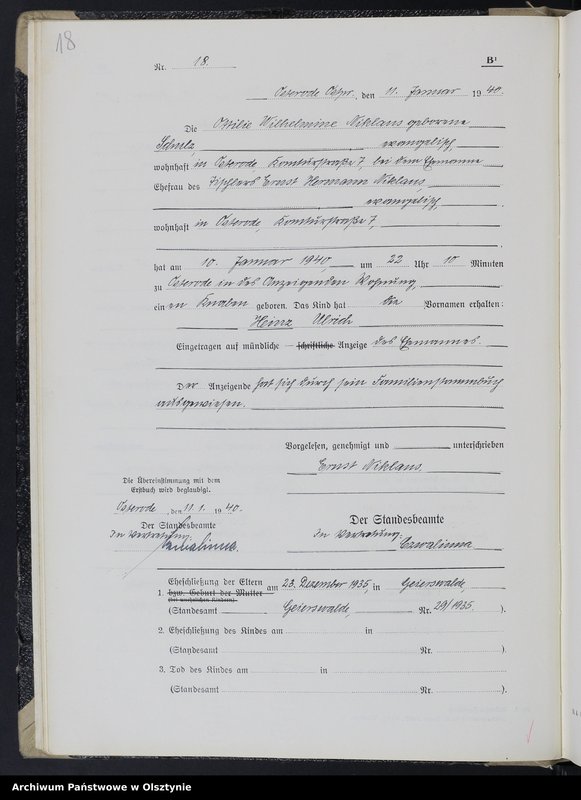 18
Nr. 18. B¹
Osterode Ostpr., den 11. Januar 1940.
Die Ottilie Wilhelmine Niklaus geborene
Schulz, evangelisch
wohnhaft in Osterode, Komturstraße 7, bei dem Ehemanne
Ehefrau des Tischlers Ernst Hermann Niklaus,
evangelisch,
wohnhaft in Osterode, Komturstraße 7,
hat am 10. Januar 1940, um 22 Uhr 10 Minuten
zu Osterode in des Anzeigenden Wohnung,
ein en Knaben geboren. Das Kind hat die Vornamen erhalten:
Heinz Ulrich
Eingetragen auf mündliche — schriftliche Anzeige des Ehemannes.
Der Anzeigende hat sich durch sein Familienstammbuch
ausgewiesen.
Vorgelesen, genehmigt und unterschrieben
Ernst Niklaus
Die Übereinstimmung mit dem
Erstbuch wird beglaubigt.
Osterode, den 11. 1. 1940.
Der Standesbeamte
In Vertretung:
Czwalinna.
Der Standesbeamte
In Vertretung:
Czwalinna
1. Eheschließung der Eltern am 23. Dezember 1935, in Geierswalde,
bzw. Geburt der Mutter
(bei unehelichen Kindern)
(Standesamt Geierswalde, Nr. 29/1935. ).
2. Eheschließung des Kindes am in
(Standesamt Nr. ).
3. Tod des Kindes am in
(Standesamt Nr. ).
Archiwum Państwowe w Olsztynie